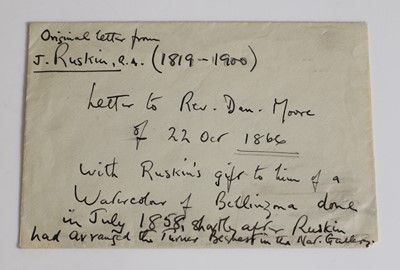 Original letter from
J. Ruskin, R.A. (1819-1900)
Letter to Rev. Dan. Moore
of 22 Oct 1866
with Ruskin's gift to him of a
Watercolour of Bellinzona done
in July 1858, shortly after Ruskin
had arranged the Turner Bequest in the Nat. Gallery.